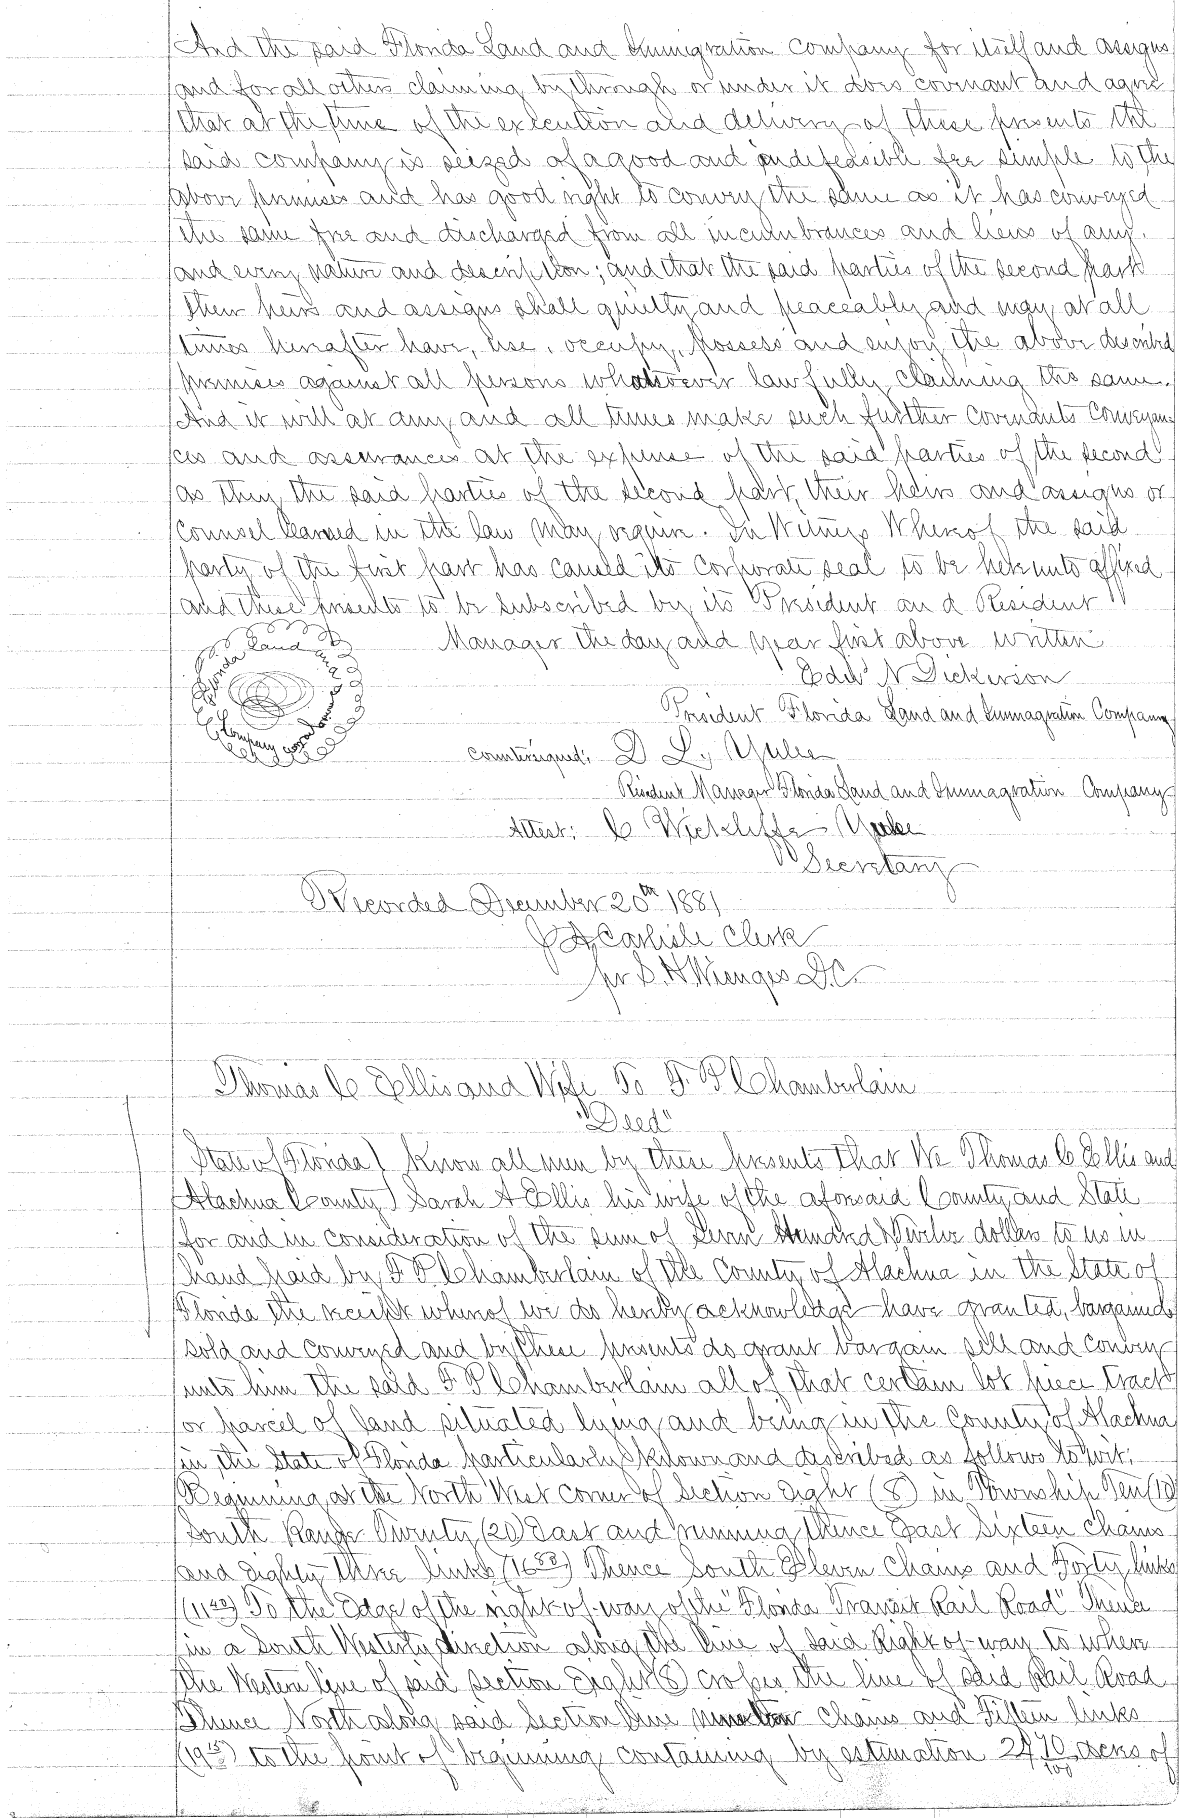 And the said Florida Land and Immigration company for itself and assigns
and for all others claiming by through or under it does covenant and agree
that at the time of the execution and delivery of these presents the
said company is seized of a good and indefeasible fee simple to the
above premises and has good right to convey the same as it has conveyed
the same free and discharged from all incumbrances and liens of any
and every nature and description; and that the said parties of the second part
their heirs and assigns shall quietly and peaceably and may at all
times hereafter have, use, occupy, possess and enjoy the above described
premises against all persons whatsoever lawfully claiming the same.
And it will at any and all times make such further covenants conveyan
ces and assurances at the expense of the said parties of the second
as they the said parties of the second part, their heirs and assigns or
counsel learned in the law may require. In Witness Whereof the said
party of the first part has caused its corporate seal to be hereunto affixed
and these presents to be subscribed by its President and Resident
Manager the day and year first above written
Florida Land and Immigration Company
Edwd N Dickerson
President Florida Land and Immagration Company
Countersigned: D L, Yulee
Resident Manager Florida Land and Immagration Company
Attest: C Wickliffe Yulee
Secretary
Recorded December 20th 1881
J A Carlisle Clerk
per S. H. Wienges D.C.
Thomas C Ellis and Wife To F P Chamberlain
"Deed"
State of Florida) Know all men by these presents that We Thomas C Ellis and
Alachua County) Sarah A Ellis his wife of the aforsaid County and State
for and in consideration of the sum of Seven Hundred & Twelve dollars to us in
hand paid by F P Chamberlain of the County of Alachua in the State of
Florida the receipt whereof we do hereby acknowledge have granted, bargained
sold and conveyed and by these presents do grant bargain sell and convey
unto him the said F P Chamberlain all of that certain lot piece tract
or parcel of land situated lying and being in the County of Alachua
in the State of Florida particularly known and described as follows to wit:
Beginning at the North West corner of Section Eight (8) in Township Ten (10)
South Range Twenty (20) East and running thence East Sixteen chains
and Eighty three links (16 83) Thence South Eleven Chains and Forty links
(11 40) To the Edge of the right-of-way of the "Florida Transit Rail Road" Thence
in a South Westerly direction along the line of said Right-of-way to where
the Western line of said section Eight (8) crosses the line of said Rail Road
Thence North along said Section line nineteen chains and Fifteen links
(19 15) to the point of beginning containing by estimation 24 70/100 acres of